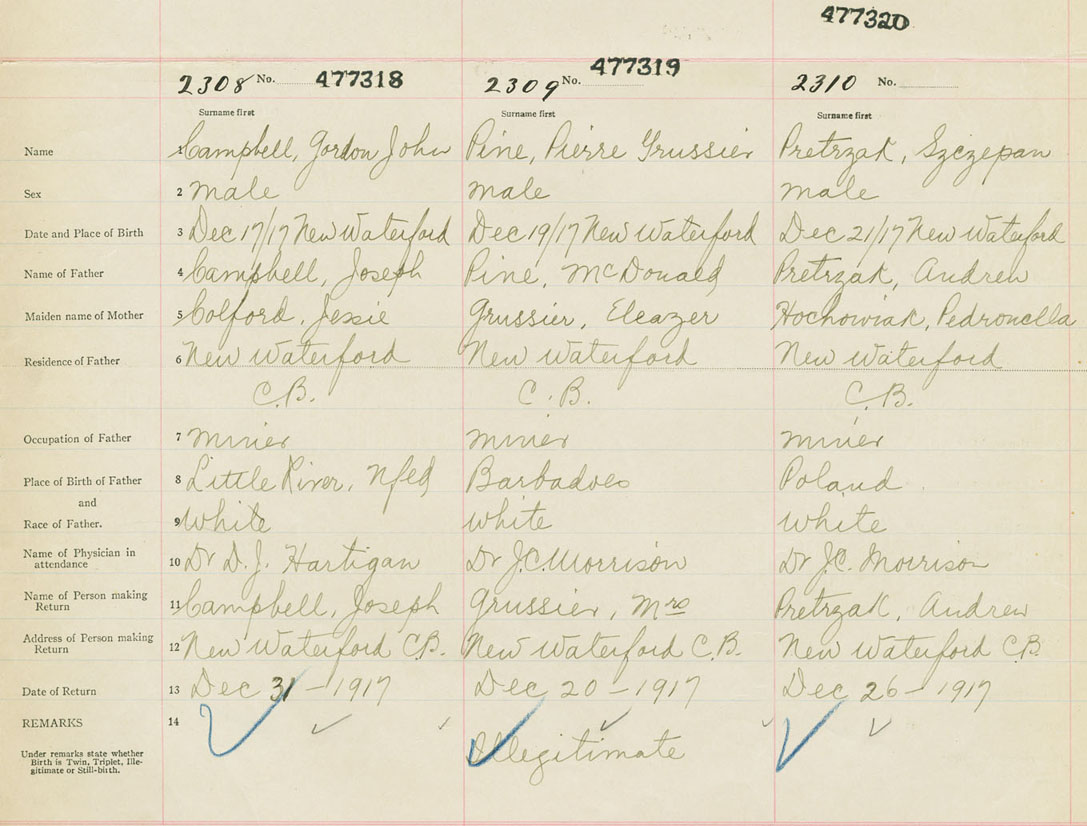 477320
2308 No. 477318 2309 No. 477319 2310 No.
Surname first Surname first Surname first
Name 1 Campbell, Gordon John Pine, Pierre Grussier Pretrzak, Szczepan
Sex 2 male male male
Date and Place of Birth 3 Dec 17/17 New Waterford Dec 19/17 New Waterford Dec 21/17 New Waterford
Name of Father 4 Campbell, Joseph Pine, McDonald Pretrzak, Andrew
Maiden name of Mother 5 Colford, Jessie Grussier, Eleazer Hochowiak, Pedronella
Residence of Father 6 New Waterford New Waterford New Waterford
C.B. C.B. C.B.
Occupation of Father 7 miner miner miner
Place of Birth of Father 8 Little River, Nfld Barbadoes Poland
and
Race of Father. 9 White White White
Name of Physician in
attendance 10 Dr D. J. Hartigan Dr J.C. Morrison Dr J.C. Morrison
Name of Person making
Return 11 Campbell, Joseph Grussier, Mrs Pretrzak, Andrew
Address of Person making
Return 12 New Waterford C.B. New Waterford C.B. New Waterford C.B.
Date of Return 13 Dec 31 - 1917 Dec 20 - 1917 Dec 26 - 1917
REMARKS 14
Illegitimate
Under remarks state whether
Birth is Twin, Triplet, Ille-
gitimate or Still-birth.